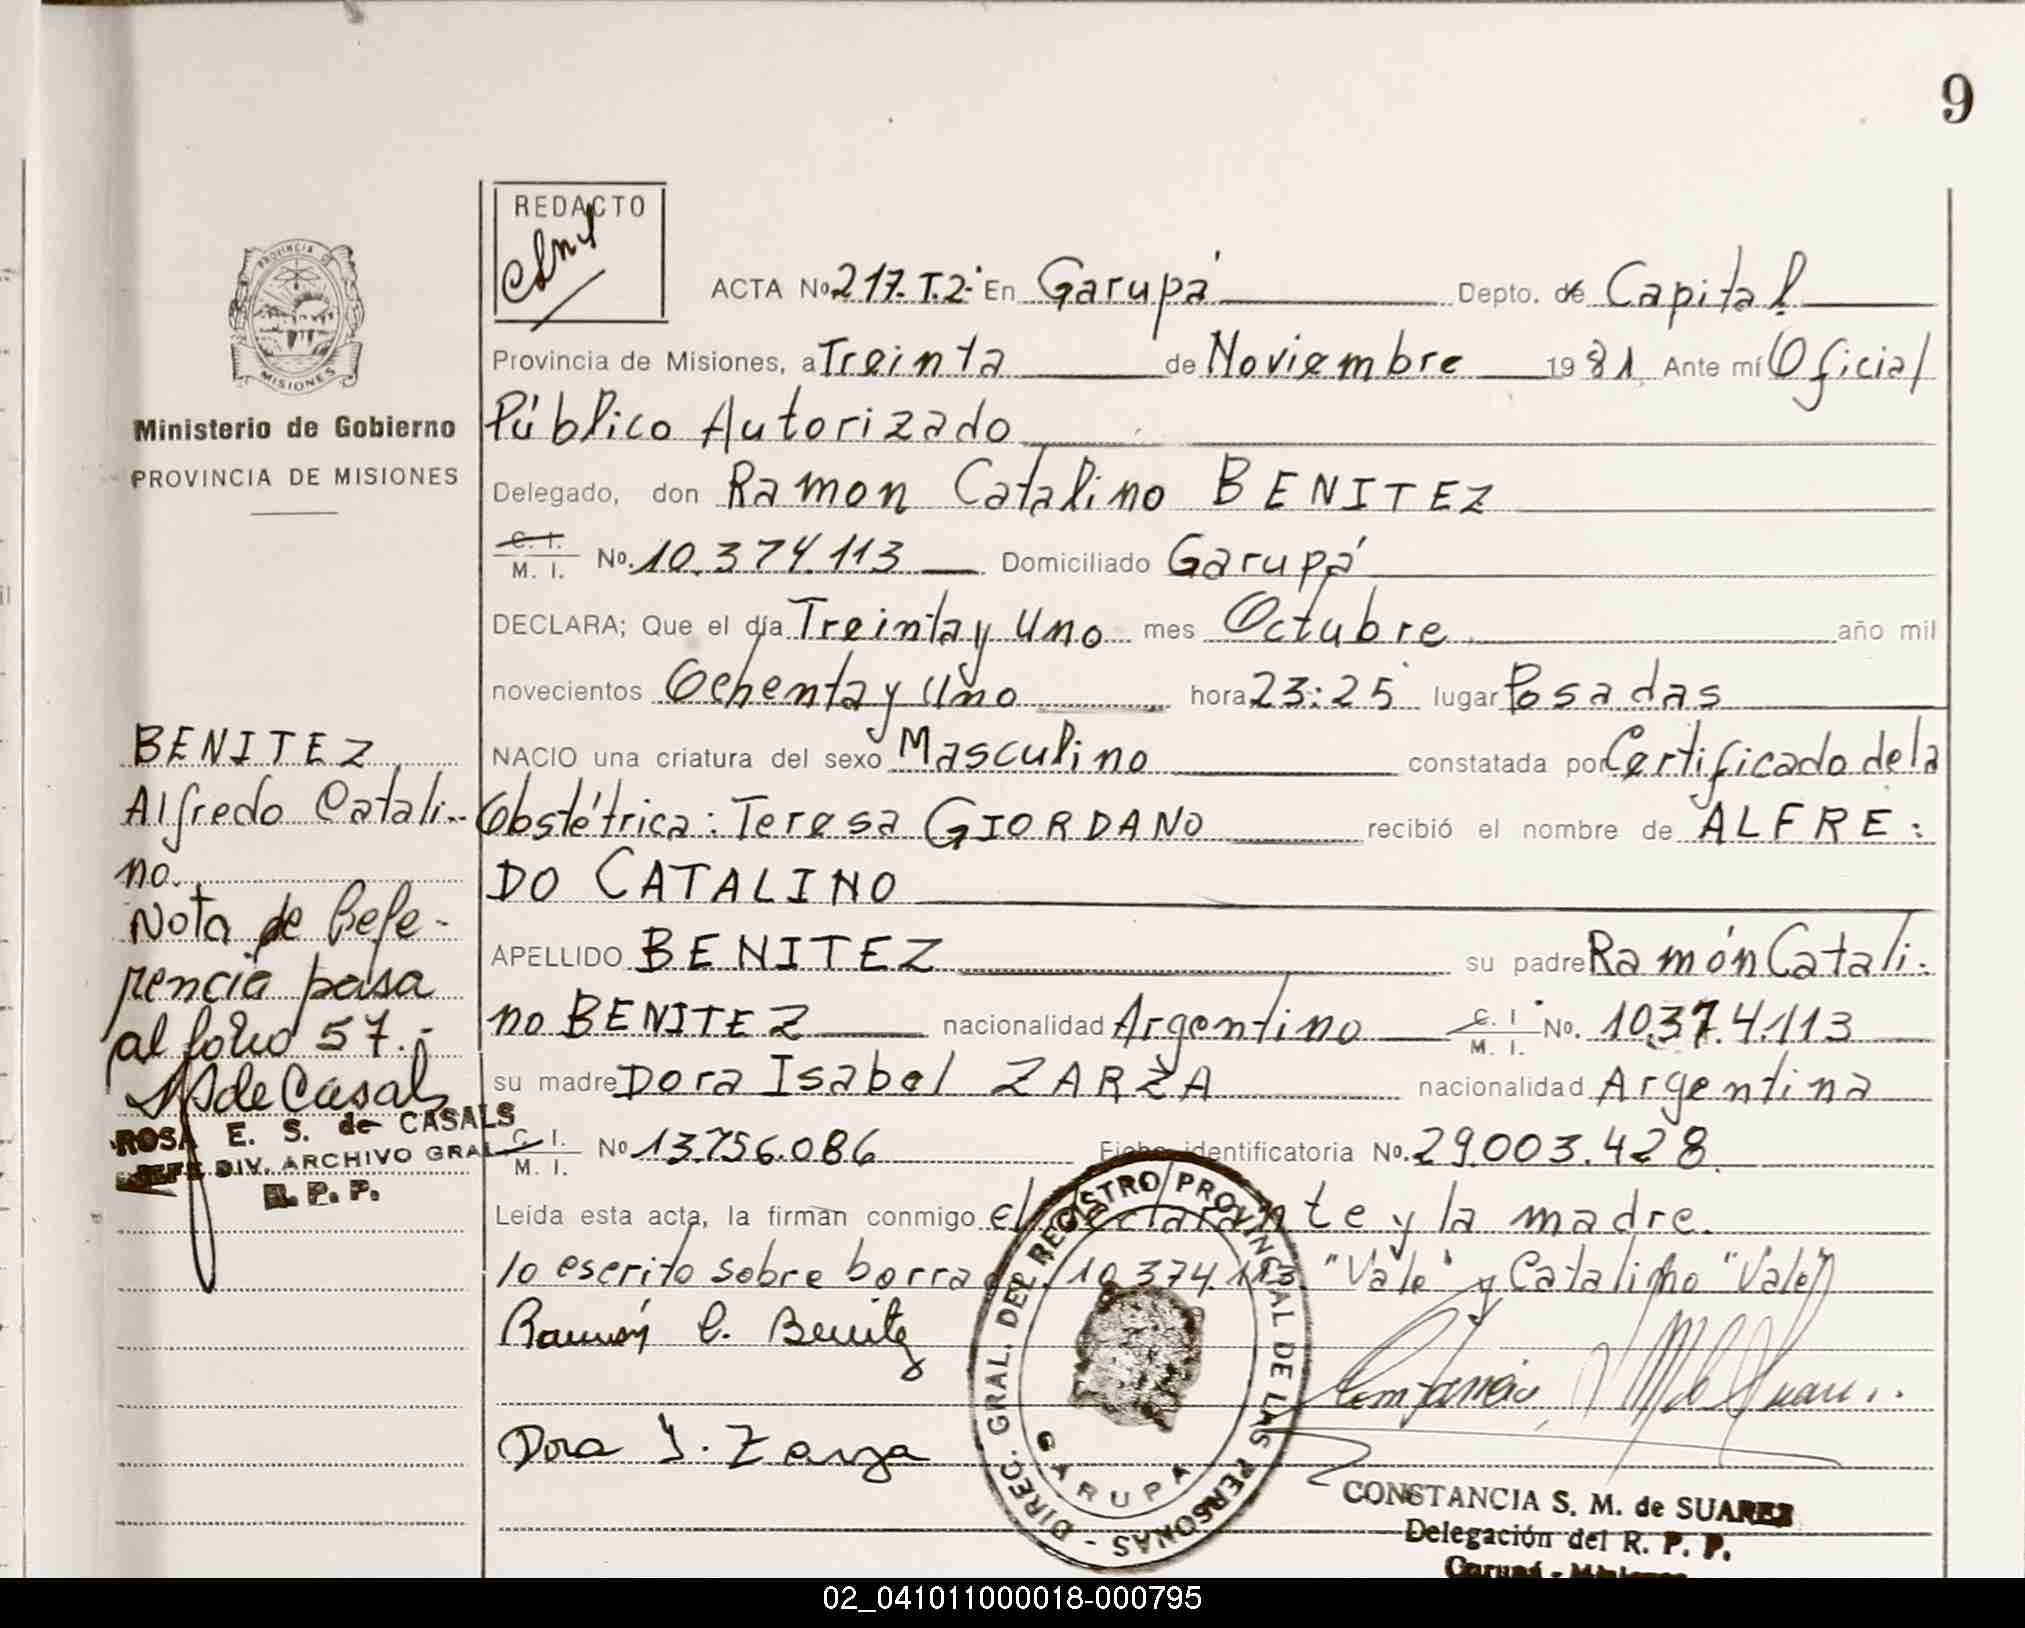 9
REDACTO
ACTA No 217.T.2. En Garupá Depto. de Capital
Provincia de Misiones, a Treinta de Noviembre 1981 Ante mí Oficial
Público Autorizado
Delegado, don Ramon Catalino BENITEZ
C. I.
M. I. No. 10.374.113 Domiciliado Garupá
DECLARA; Que el día Treinta y Uno mes Octubre año mil
novecientos Ochenta y Uno hora 23:25 lugar Posadas
NACIO una criatura del sexo Masculino constatada por Certificado de la
Obstétrica: Teresa GIORDANO recibió el nombre de ALFRE:
DO CATALINO
APELLIDO BENITEZ su padre Ramón Catali.
no BENITEZ nacionalidad Argentino C. I. M. I. No. 10.374.113
su madre Dora Isabel ZARZA nacionalidad Argentina
C. I.
M. I. No 13.756.086 Ficha identificatoria No. 29.003.428
Leída esta acta, la firman conmigo el declarante y la madre.
lo escrito sobre borrado, 10.374.113. "Vale" y Catalino "Vale"
Ramón C. Benitez
Dora I. Zarza
CONSTANCIA S. M. de SUAREZ
Delegación del R. P. P.
Garupá - Misiones
DIREC. GRAL. DEL REGISTRO PROVINCIAL DE LAS PERSONAS -
GARUPA
PROVINCIA DE
MISIONES
Ministerio de Gobierno
PROVINCIA DE MISIONES
BENITEZ
Alfredo Catali..
no.
Nota de Refe-
rencia pasa
al folio 57.-
de Casals
ROSA E. S. de CASALS
JEFE DIV. ARCHIVO GRAL
R. P. P.
02_041011000018-000795